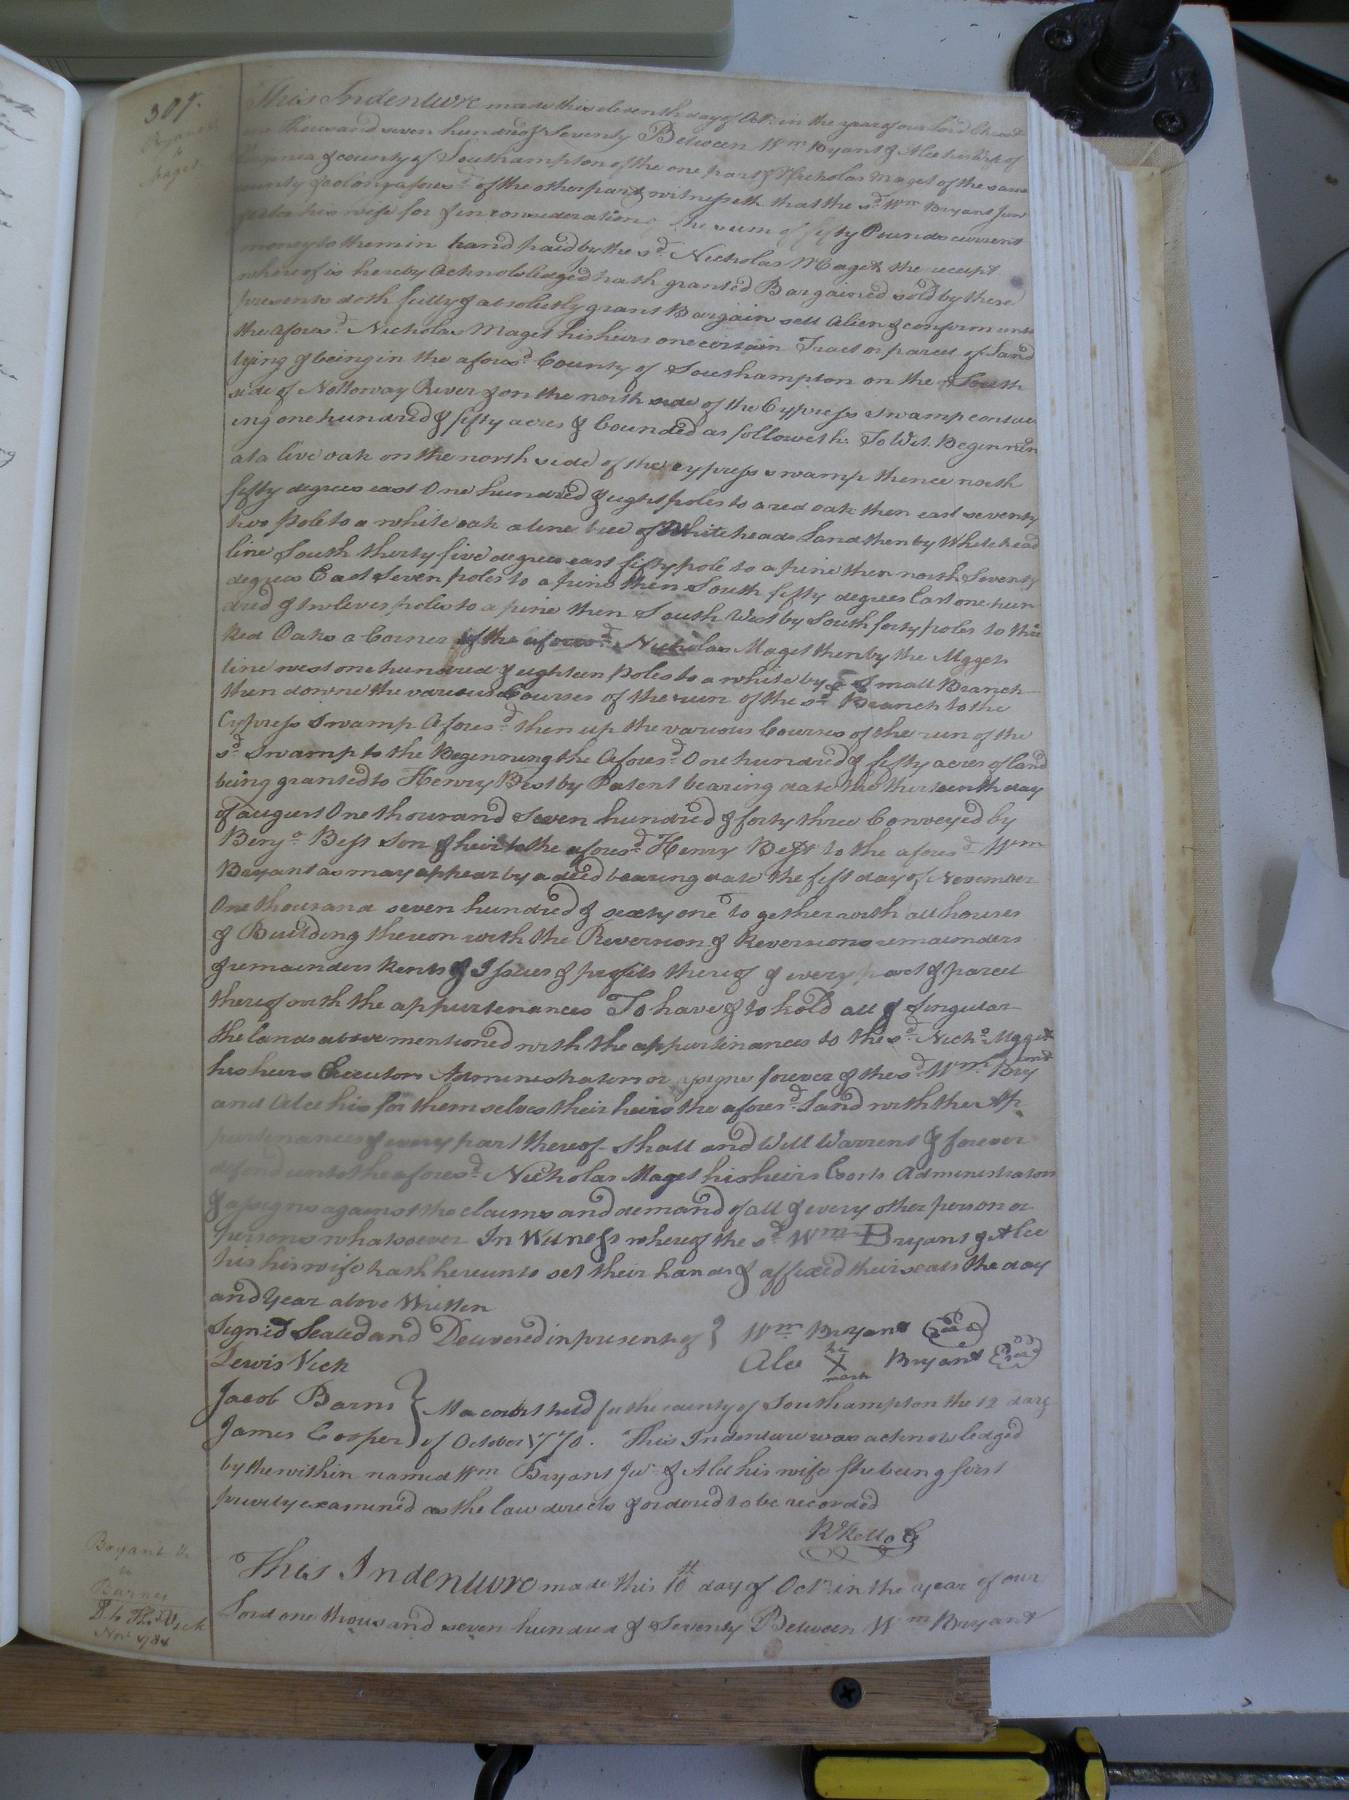 307.
Bryant
to
Maget
This Indenture made this eleventh day of Oct. in the year of our Lord Christ
one thousand seven hundred & Seventy Between Wm Bryant & Alce his Wife of
Virginia & county of Southampton of the one part & Nicholas Maget of the same
county & colony afores.d of the other part witnesseth that the s.d Wm Bryant Jun
his wife for & in consideration the sum of fifty Pounds current
money to them in hand paid by the s.d Nicholas Maget the recept
whereof is hereby Acknowledged hath granted Bargained sold by these
presents doth fully & absolutly grant Bargain sell Alien & confirm unto
the afores.d Nicholas Maget his heirs one certain Tract or parcel of Land
lying & being in the afores.d County of Southampton on the South
side of Nottoway River & on the north side of the Cypress swamp contain
ing one hundred & fifty acres & bounded as followeth To Wit. Beginnin
at a live oak on the north side of the cypress swamp thence north
fifty degrees east One hundred & eight poles to a red oak then east seventy
two pole to a white oak a line tree of Whiteheads Land then by Whitehead
line South thirty five degrees east fifty pole to a pine then north Seventy
degrees East Seven poles to a pine then South fifty degrees East one hun
dred & twleve poles to a pine then South West by South forty poles to three
Red Oaks a Corner of the afores.d Nicholas Maget then by the Magets
line west one hundred & eighteen Poles to a white by a Small Branch
then downe the various Courses of the run of the s.d Branch to the
Cypress Swamp Afores.d then up the various Courses of the run of the
s.d Swamp to the Beginning the Afores.d One hundred & fifty acres of land
being granted to Henry Best by Patent bearing date the thirteenth day
of august One thousand Seven hundred & forty three Conveyed by
Benj.a Bess Son & heir to the afores.d Henry Best to the afores.d Wm
Bryant as may appear by a deed bearing date the fifst day of November
One thousand seven hundred & sexty one to gether with all houses
& Building thereon with the Reversion & Reversions remainders
& remainders Rents & Issues & profits thereof & every part & parcel
thereof with the appurtenances To have & to hold all & Singular
the lands above mentioned with the appurtinances to the s.d Nich.s Maget
his heirs Executors Administrators or assigns forever & the s.d Wm Bryant
and Alce his for themselves their heirs the afores.d Land with the Ap
purtenances & every part thereof shall and Will Warrent & forever
defend unto the afores.d Nicholas Maget his heirs Exors Administrators
& assigns against the claims and demand of all & every other person or
persons whatsoever In Witness whereof the s.d Wm Bryant & Alce
his his wife hath hereunto set their hands & affixed their seals the day
and Year above Written
Signed Sealed and Delivered in presents of } Wm Bryant (Seal)
Lewis Vick Alce her X mark Bryant (Seal)
Jacob Barns } At a court held for the county of Southampton the 12 day
James Cooper } of October 1770. This Indenture was acknowledged
by the within named Wm Bryant Jur & Alce his wife she being first
privily examined as the law directs & ordered to be recorded
Bryant
to
Barnes
Nov 1784
This Indenture made this 10th day of Octr in the year of our
Lord one thousand seven hundred & Seventy Between Wm Bryant